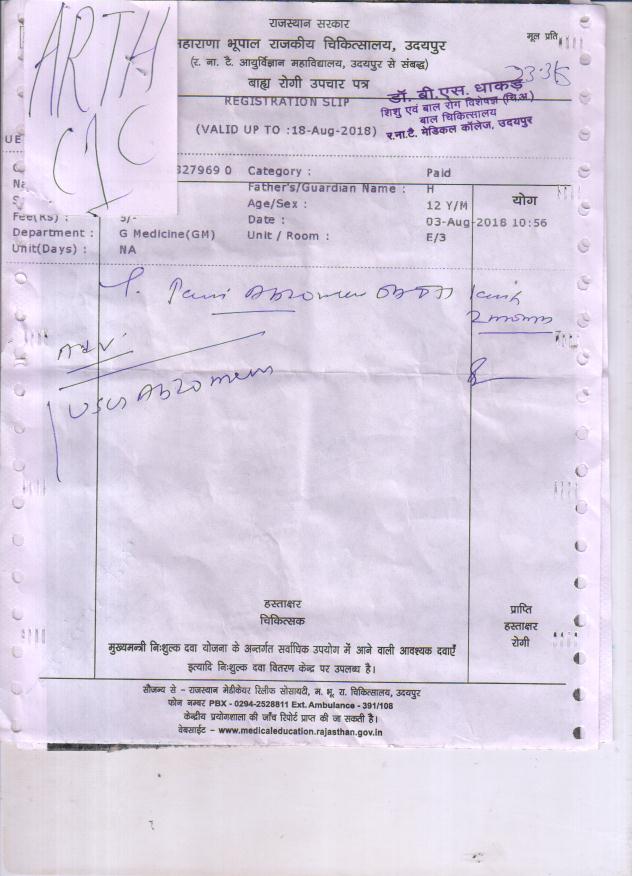 राजस्थान सरकार
मूल प्रति
महाराणा भूपाल राजकीय चिकित्सालय, उदयपुर
(र. ना. टै. आयुर्विज्ञान महाविद्यालय, उदयपुर से संबद्ध)
बाह्य रोगी उपचार पत्र
REGISTRATION SLIP
(VALID UP TO :18-Aug-2018)
डॉ. बी.एस. धाकड़
शिशु एवं बाल रोग विशेषज्ञ (चि.अ.)
बाल चिकित्सालय
र.ना.टै. मेडिकल कॉलेज, उदयपुर
ARTH
UE
327969 0 Category : Paid
Father's/Guardian Name : H
Age/Sex : 12 Y/M
योग
Fee(Rs) : 5/- Date : 03-Aug-2018 10:56
Department : G Medicine(GM) Unit / Room : E/3
Unit(Days) : NA
Adv.
USG Abdomen
हस्ताक्षर
चिकित्सक
प्राप्ति
हस्ताक्षर
रोगी
मुख्यमन्त्री निःशुल्क दवा योजना के अन्तर्गत सर्वाधिक उपयोग में आने वाली आवश्यक दवाएँ
इत्यादि निःशुल्क दवा वितरण केन्द्र पर उपलब्ध है।
सौजन्य से - राजस्थान मेडीकेयर रिलीफ सोसायटी, म. भू. रा. चिकित्सालय, उदयपुर
फोन नम्बर PBX - 0294-2528811 Ext. Ambulance - 391/108
केन्द्रीय प्रयोगशाला की जाँच रिपोर्ट प्राप्त की जा सकती है।
वेबसाईट - www.medicaleducation.rajasthan.gov.in